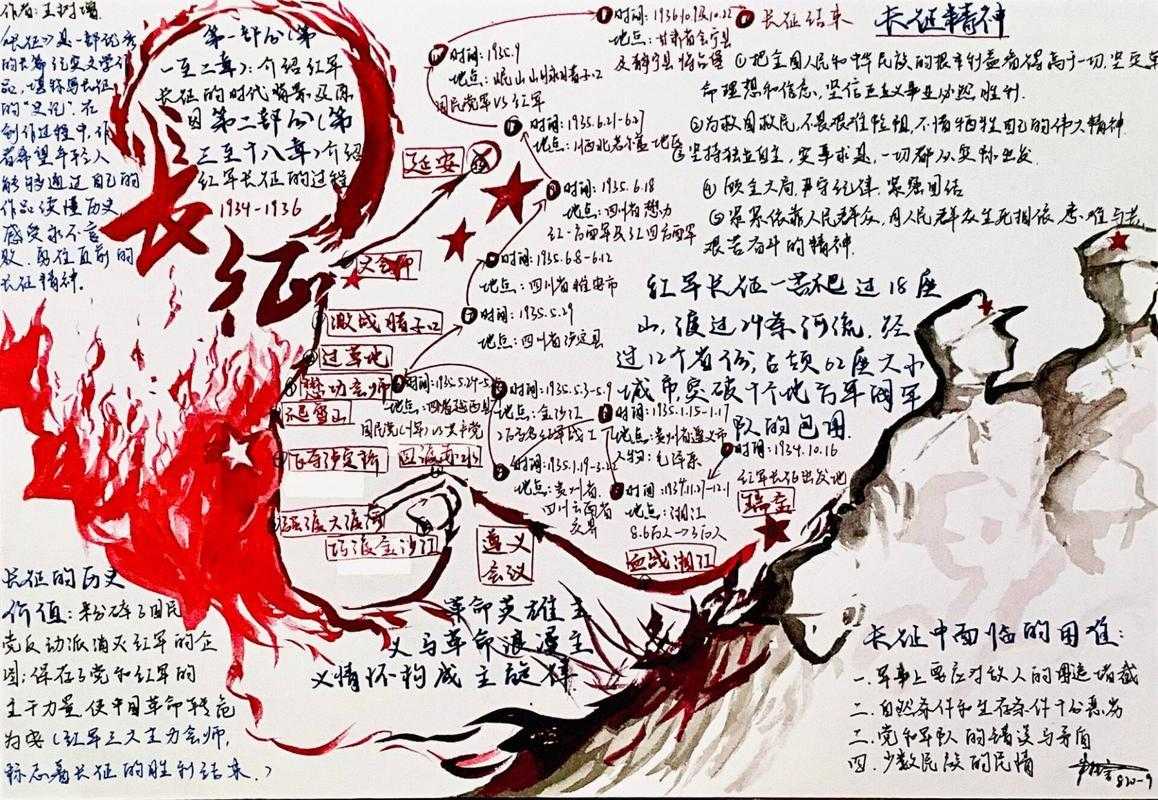 作者:王树增
《长征》是一部记实
的长篇纪实文学作
品,堪称写长征
的"史记".在
创作过程中,作
者希望年轻人
能够通过自己的
作品读懂历史,
感受永不言
败、勇往直前的
长征精神.
第一部分(第
一至二章):介绍红军
长征的时代背景及原
因 第二部分(第
三至十八章)介绍
红军长征的过程
1934-1936
长征
时间:1936.10.9及10.22
长征结束
地点:甘肃省会宁县
及静宁县将台堡
时间:1935.9
地点:岷山山脉腊子口
国民党军VS红军
时间:1935.6.21-6.27
时间:1935.6.18
地点:四川省懋功
红一方面军及红四方面军
时间:1935.6.8-6.12
地点:四川省雅安市
时间:1935.5.29
地点:四川省泸定县
时间:1935.5.24-5.
地点:四川省越西县
国民党(川军)VS共产党
时间:1935.5.3-5.9
地点:金沙江
时间:1935.1.15-1.17
地点:贵州省遵义市
人物:毛泽东
时间:1935.1.19-3.22
地点:贵州省
四川云南省
交界
时间:1934.11.27-12.1
地点:湘江
8.6万人→3万人
时间:1934.10.16
红军长征出发地
瑞金
血战湘江
遵义
会议
四渡赤水
巧渡金沙江
强渡大渡河
飞夺泸定桥
懋功会师
过草地
激战腊子口
大会师
延安
长征精神
①把全国人民和中华民族的根本利益看得高于一切,坚定革
命理想和信念,坚信正义事业必然胜利.
②为救国救民,不畏艰难险阻,不惜牺牲自己的伟大精神.
③坚持独立自主,实事求是,一切都从实际出发.
④顾全大局,严守纪律,紧强团结
⑤紧紧依靠人民群众,同人民群众生死相依,患难与共
艰苦奋斗的精神.
红军长征一共爬过18座
山,渡过24条河流,经
过12个省份,占领62座大小
城市,突破十个地方军阀军
队的包围.
长征的历史
价值:粉碎了国民
党反动派消灭红军的企
图;保存了党和红军的
主干力量,使中国革命转危
为安(红军三大主力会师,
标志着长征的胜利结束.)
革命英雄主
义与革命浪漫主
义情怀构成主旋律
长征中面临的困难:
一.军事上要应对敌人的围追堵截
二.自然条件和生存条件十分恶劣
三.党和军队的错误与矛盾
四.少数民族的民情